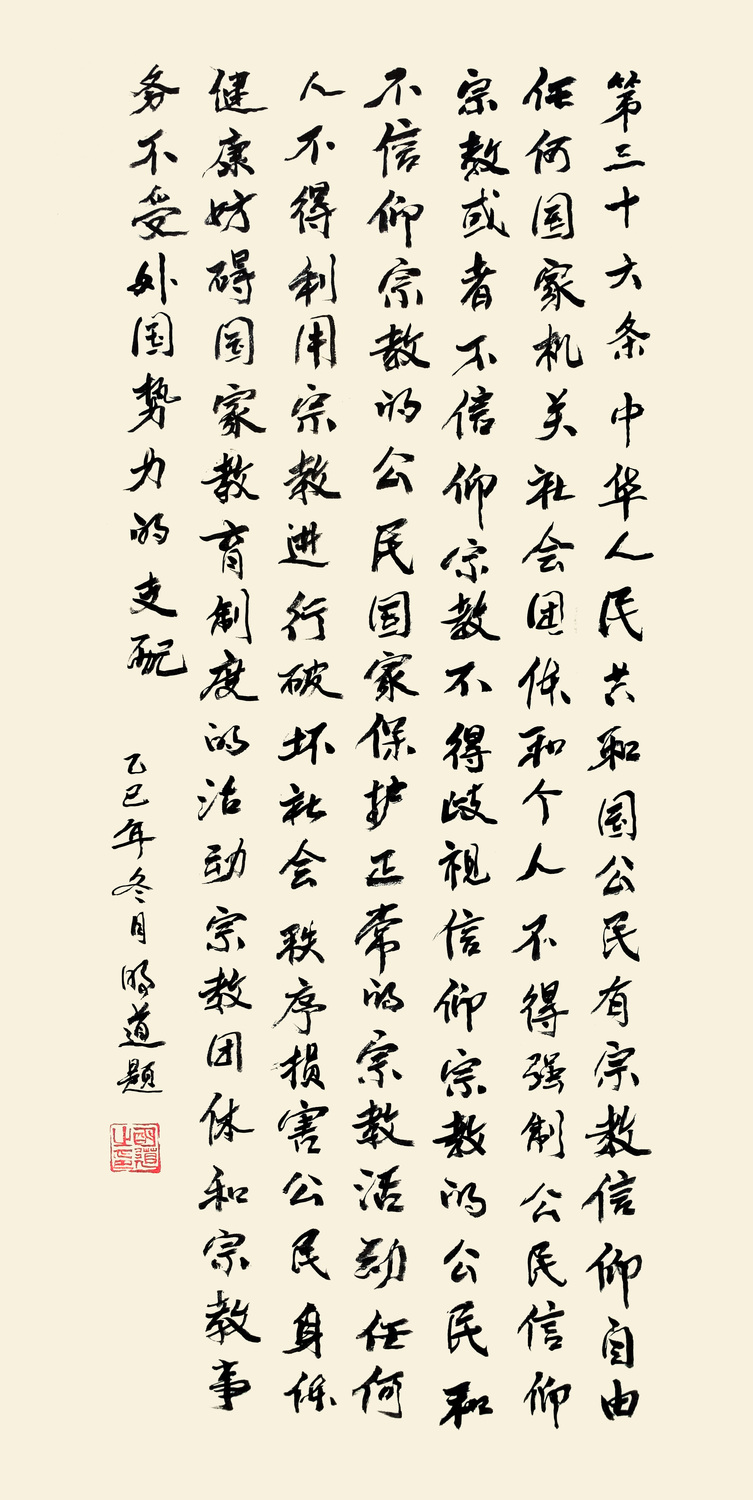 第三十六条中华人民共和国公民有宗教信仰自由
任何国家机关社会团体和个人不得强制公民信仰
宗教或者不信仰宗教不得歧视信仰宗教的公民和
不信仰宗教的公民国家保护正常的宗教活动任何
人不得利用宗教进行破坏社会秩序损害公民身体
健康妨碍国家教育制度的活动宗教团体和宗教事
务不受外国势力的支配
乙巳年冬月明道题
明道之印